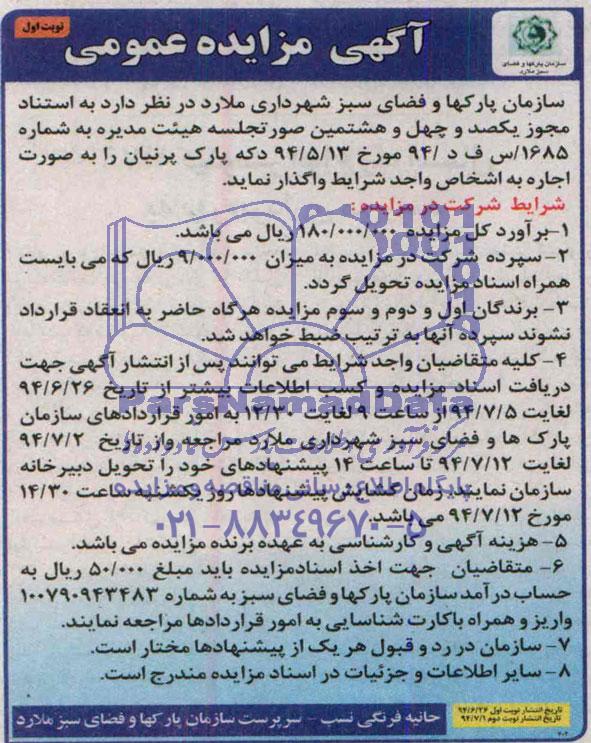 نوبت اول
آگهی مزایده عمومی
سازمان پارکها و فضای
سبز ملارد
سازمان پارکها و فضای سبز شهرداری ملارد در نظر دارد به استناد
مجوز یکصد و چهل و هشتمین صورتجلسه هیئت مدیره به شماره
۱۶۸۵/س ف د /۹۴ مورخ ۹۴/۵/۱۳ دکه پارک پرنیان را به صورت
اجاره به اشخاص واجد شرایط واگذار نماید.
شرایط شرکت در مزایده :
۱-برآورد کل مزایده ۱۸۰/۰۰۰/۰۰۰ ریال می باشد.
۲- سپرده شرکت در مزایده به میزان ۹/۰۰۰/۰۰۰ ریال که می بایست
همراه اسناد مزایده تحویل گردد.
۳- برندگان اول و دوم و سوم مزایده هرگاه حاضر به انعقاد قرارداد
نشوند سپرده آنها به ترتیب ضبط خواهد شد.
۴- کلیه متقاضیان واجد شرایط می توانند پس از انتشار آگهی جهت
دریافت اسناد مزایده و کسب اطلاعات بیشتر از تاریخ ۹۴/۶/۲۶
لغایت ۹۴/۷/۵ از ساعت ۹ لغایت ۱۴/۳۰ به امور قراردادهای سازمان
پارک ها و فضای سبز شهرداری ملارد مراجعه واز تاریخ ۹۴/۷/۲
لغایت ۹۴/۷/۱۲ تا ساعت ۱۴ پیشنهادهای خود را تحویل دبیرخانه
سازمان نمایند.زمان گشایش پیشنهادها روز یکشنبه ساعت ۱۴/۳۰
مورخ ۹۴/۷/۱۲ می باشد.
۵- هزینه آگهی و کارشناسی به عهده برنده مزایده می باشد.
۶- متقاضیان جهت اخذ اسنادمزایده باید مبلغ ۵۰/۰۰۰ ریال به
حساب درآمد سازمان پارکها و فضای سبز به شماره ۱۰۰۷۹۰۹۴۳۴۸۳
واریز و همراه باکارت شناسایی به امور قراردادها مراجعه نمایند.
۷- سازمان در رد و قبول هر یک از پیشنهادها مختار است.
۸- سایر اطلاعات و جزئیات در اسناد مزایده مندرج است.
ParsNamadData
پایگاه اطلاع رسانی مناقصه و مزایده
۰۲۱-۸۸۳۴۹۶۷۰-۵
تاریخ انتشار نوبت اول ۹۴/۶/۲۶
تاریخ انتشار نوبت دوم ۹۴/۷/۱
حانیه فرنگی نسب - سرپرست سازمان پارکها و فضای سبز ملارد